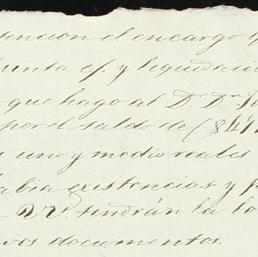 tencion el encargo q
unta cf. y liquidació
que hago al D. Dn. Jo
por el saldo de ($ 471
uno y medio reales
abia existencias y p
VV. tendrán la bo
ivos documentos.